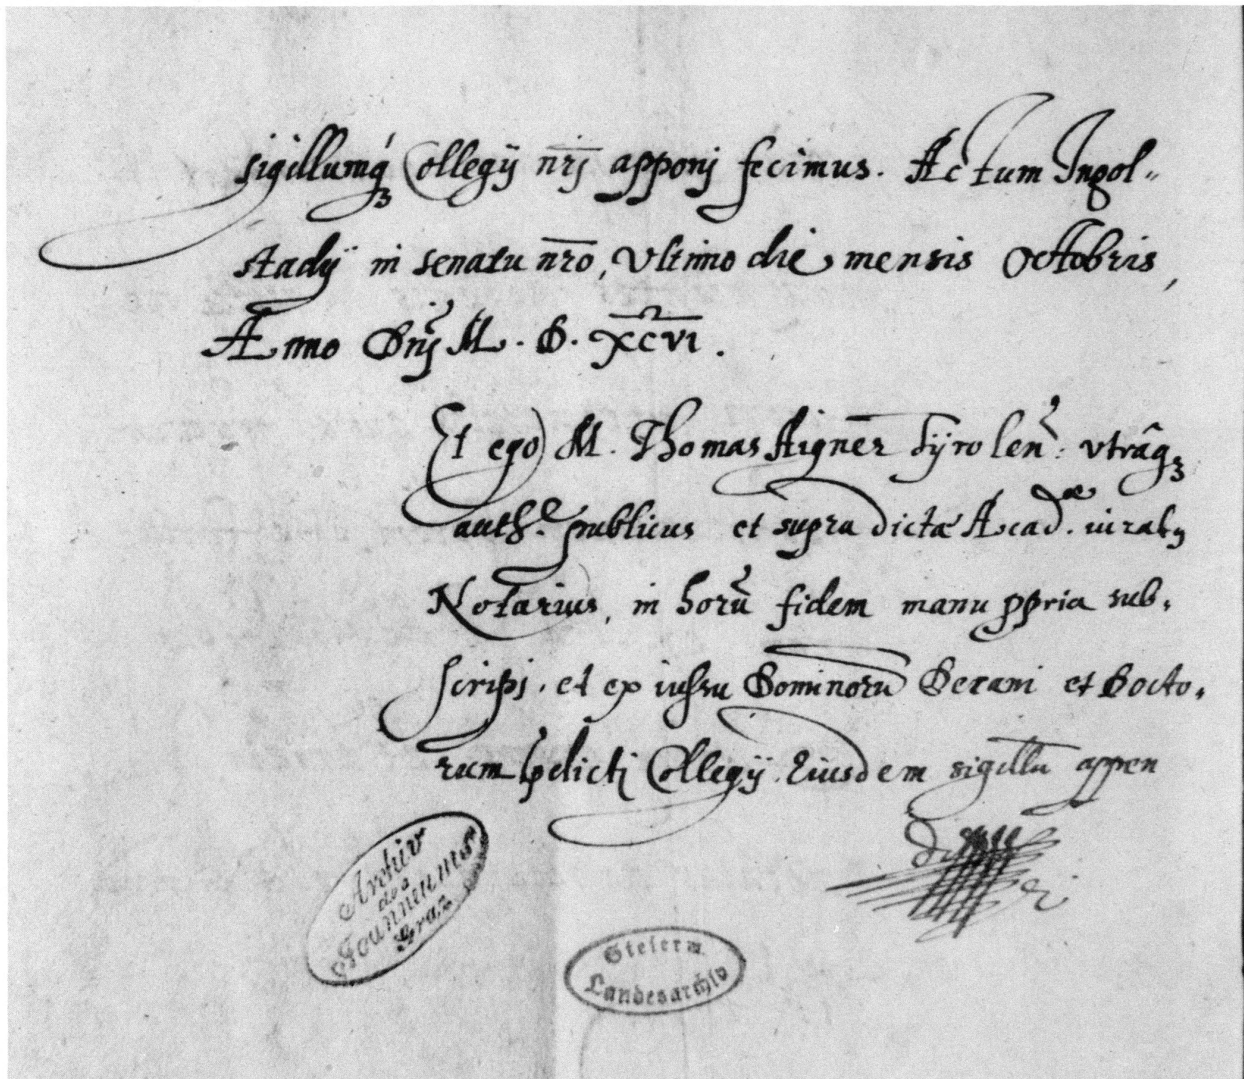 sigillumq́ꝫ Collegij nr̄j apponj fecimus. Actum Ingol„
stadij in senatu nr̄o, Vltimo die mensis Octobris,
Anno Dnj M. D. XCVI.
Et ego M. Thomas Aigner Tÿrolen: vtrâqꝫ
auth.e publicus et supra dictæ Acad.æ iurat9
Notarius, in horū fidem manu ppria sub,
scripsi, et ex iussu Dominorū Decani et Docto,
rum pdicti Collegij Eiusdem sigillū appen
di
Archiv
des
Joanneums
Graz
Steierm.
Landesarchiv